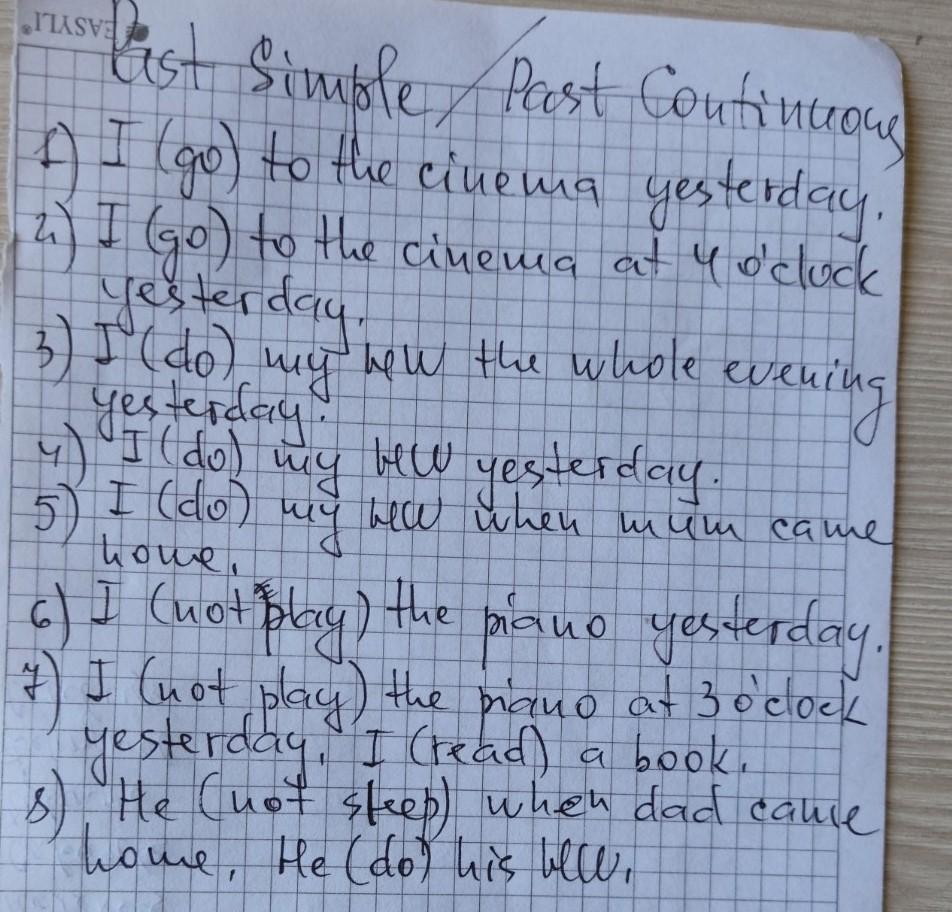 EASYLI
Past Simple / Past Continuous
1) I (go) to the cinema yesterday.
2) I (go) to the cinema at 4 o'clock
yesterday.
3) I (do) my hw the whole evening
yesterday.
4) I (do) my hw yesterday.
5) I (do) my hw when mum came
home.
6) I (not play) the piano yesterday.
7) I (not play) the piano at 3 o'clock
yesterday, I (read) a book.
8) He (not sleep) when dad came
home. He (do) his hw.